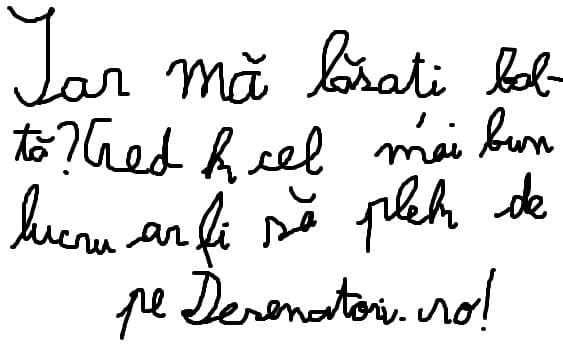 Iar mă lăsati bal-
tă? Cred k cel mai bun
lucru ar fi să plek de
pe Desenatori.ro!